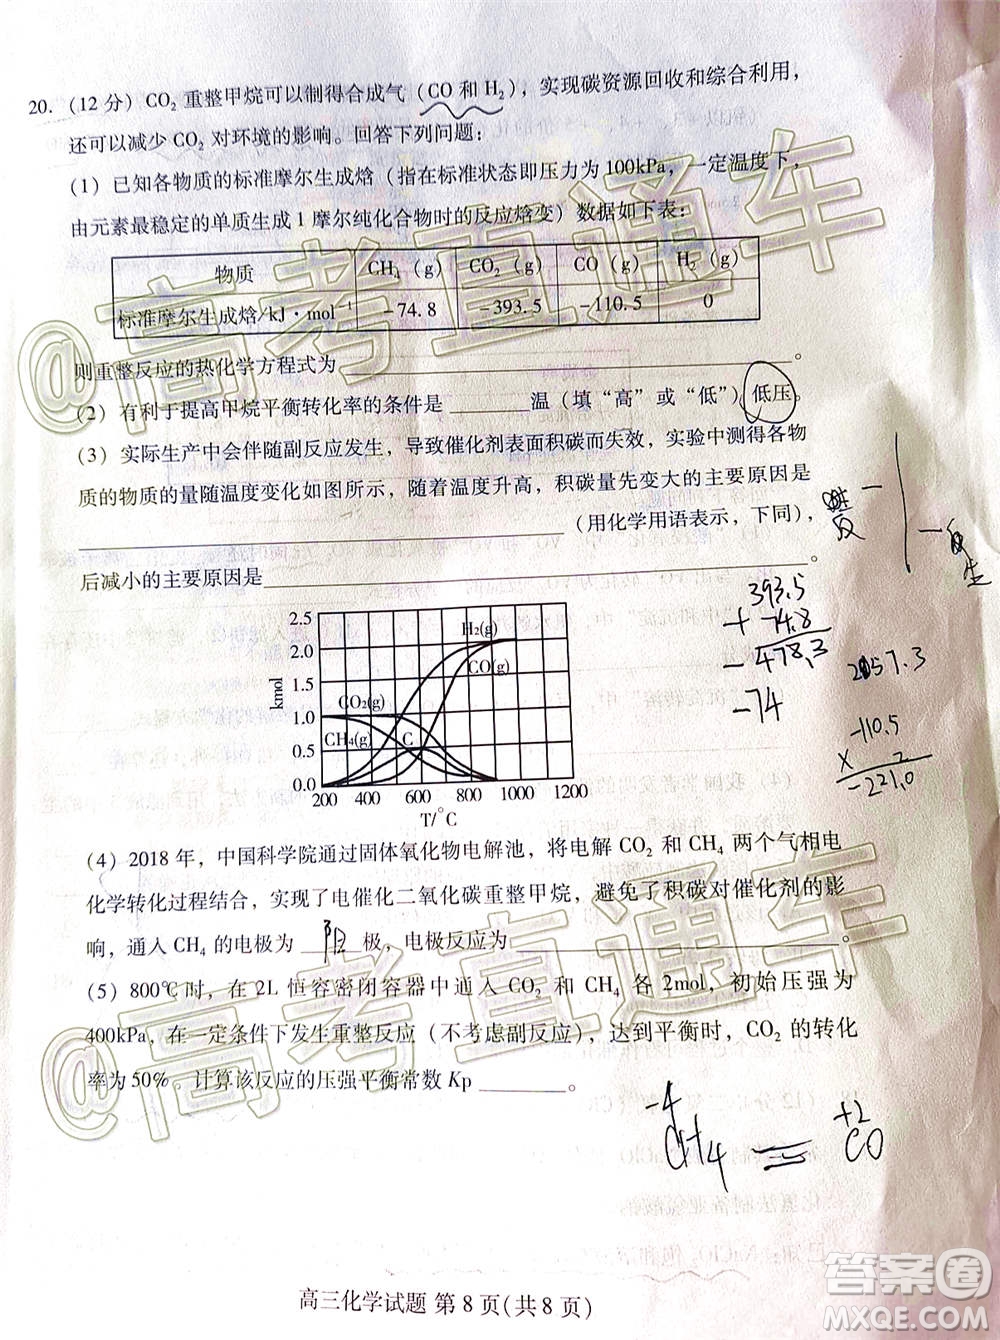 20. (12 分) CO₂ 重整甲烷可以制得合成气 (CO 和 H₂), 实现碳资源回收和综合利用,
还可以减少 CO₂ 对环境的影响。回答下列问题:
(1) 已知各物质的标准摩尔生成焓 (指在标准状态即压力为 100kPa, 一定温度下,
由元素最稳定的单质生成 1 摩尔纯化合物时的反应焓变) 数据如下表:
物质 CH₄ (g) CO₂ (g) CO (g) H₂ (g)
标准摩尔生成焓/kJ·mol⁻¹ -74.8 -393.5 -110.5 0
则重整反应的热化学方程式为 ________。
(2) 有利于提高甲烷平衡转化率的条件是 ________温 (填 “高” 或 “低”) 低压。
(3) 实际生产中会伴随副反应发生, 导致催化剂表面积碳而失效, 实验中测得各物
质的物质的量随温度变化如图所示, 随着温度升高, 积碳量先变大的主要原因是
________ (用化学用语表示, 下同),
后减小的主要原因是________。
反
反
生
393.5
+ 74.8
-478.3
-74
57.3
-110.5
× 2
-221.0
kmol
2.5
2.0
1.5
1.0
0.5
0.0
H₂(g)
CO(g)
CO₂(g)
CH₄(g)
C
200 400 600 800 1000 1200
T/°C
(4) 2018 年, 中国科学院通过固体氧化物电解池, 将电解 CO₂ 和 CH₄ 两个气相电
化学转化过程结合, 实现了电催化二氧化碳重整甲烷, 避免了积碳对催化剂的影
响, 通入 CH₄ 的电极为 阳 极, 电极反应为 ________。
(5) 800℃时, 在 2L 恒容密闭容器中通入 CO₂ 和 CH₄ 各 2mol, 初始压强为
400kPa, 在一定条件下发生重整反应 (不考虑副反应), 达到平衡时, CO₂ 的转化
率为 50%, 计算该反应的压强平衡常数 Kp ________。
-4 +2
CH₄ = CO
高三化学试题 第 8 页(共 8 页)
@高考直通车
@高考直通车
答案圈
MXQE.COM